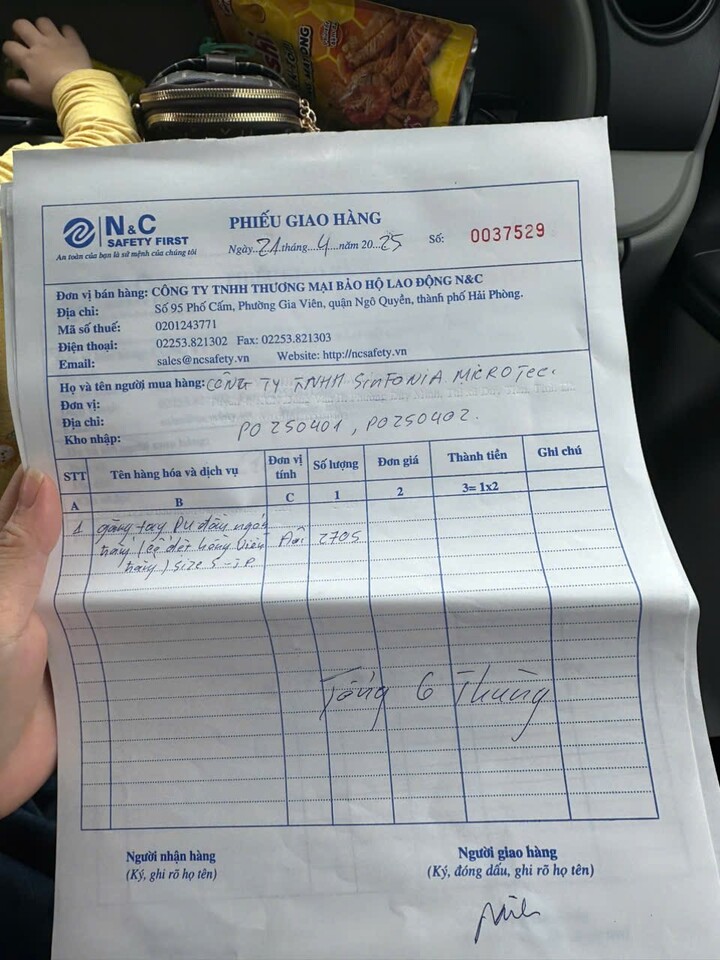 N&C
SAFETY FIRST
An toàn của bạn là sứ mệnh của chúng tôi
PHIẾU GIAO HÀNG
Ngày..21.tháng..4...năm 20..25 Số: 0037529
Đơn vị bán hàng: CÔNG TY TNHH THƯƠNG MẠI BẢO HỘ LAO ĐỘNG N&C
Địa chỉ: Số 95 Phố Cấm, Phường Gia Viên, quận Ngô Quyền, thành phố Hải Phòng.
Mã số thuế: 0201243771
Điện thoại: 02253.821302 Fax: 02253.821303
Email: sales@ncsafety.vn Website: http://ncsafety.vn
Họ và tên người mua hàng: CÔNG TY TNHH SinFONIA MICROTEC.
Đơn vị:
Địa chỉ: PO250401, PO250402.
Kho nhập:
STT Tên hàng hóa và dịch vụ Đơn vị tính Số lượng Đơn giá Thành tiền Ghi chú
A B C 1 2 3= 1x2
1 găng tay PU đầu ngón
viền Đôi 2705
size S
Tổng 6 Thùng
Người nhận hàng
(Ký, ghi rõ họ tên)
Người giao hàng
(Ký, đóng dấu, ghi rõ họ tên)